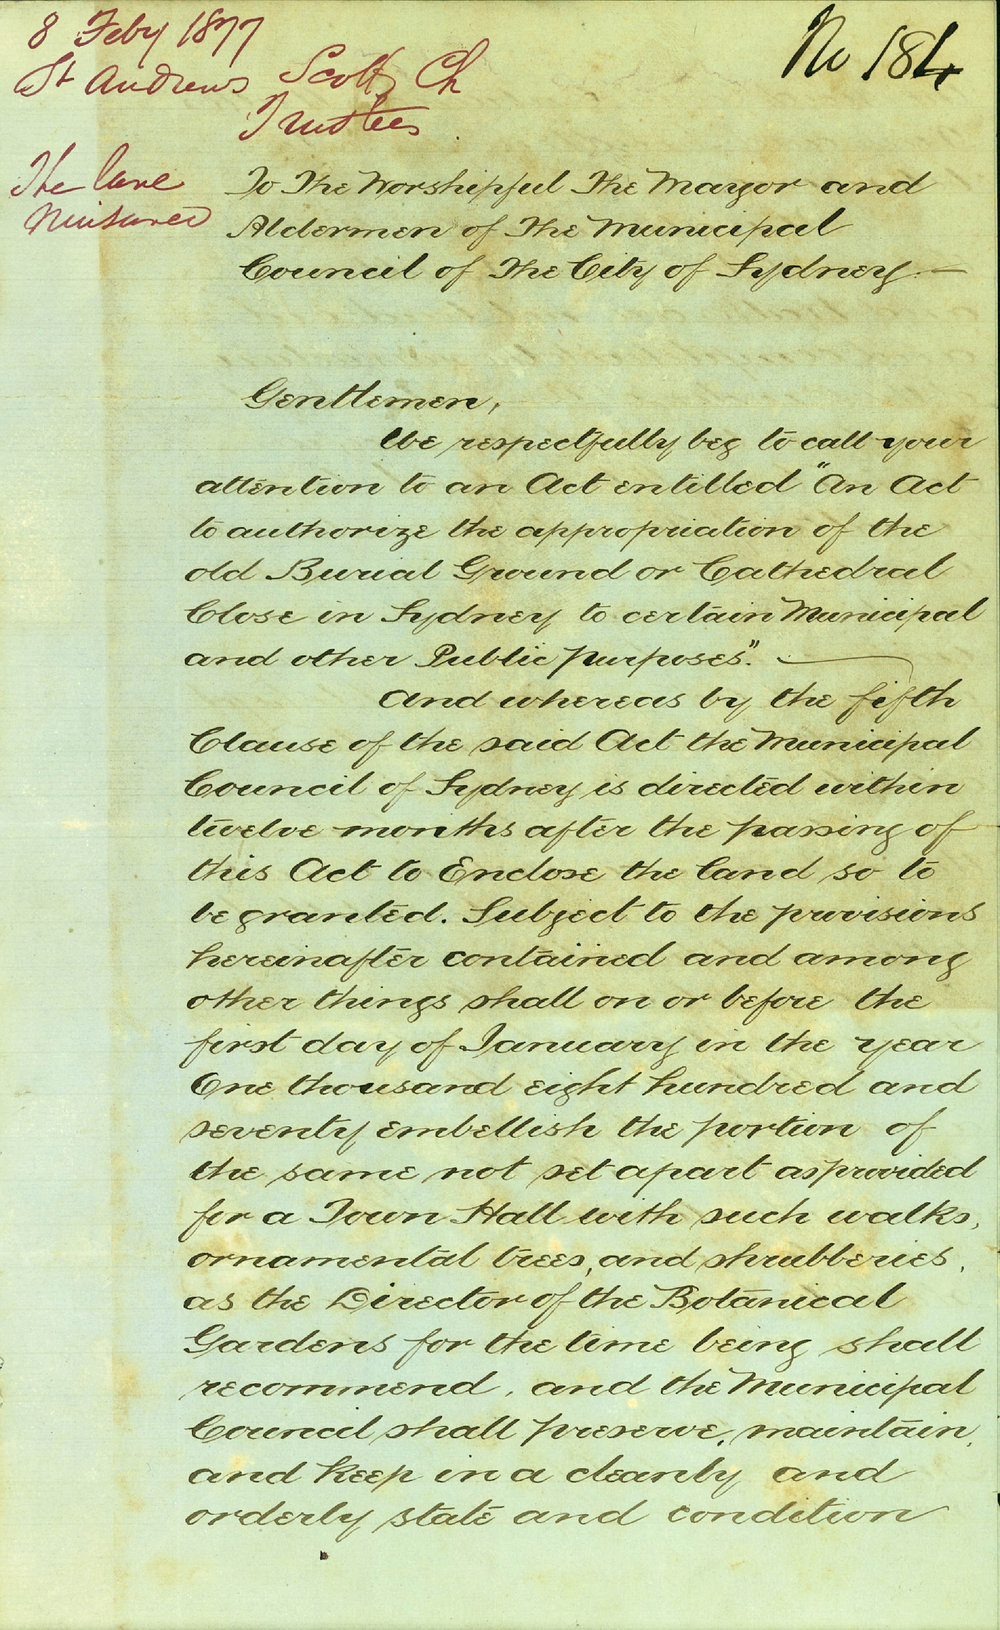 8 Feby 1877
St Andrews Scotts Ch
Trustees
No 184
The lane
Nuisance
To The Worshipful The Mayor and
Aldermen of The Municipal
Council of The City of Sydney.—
Gentlemen,
We respectfully beg to call your
attention to an Act entitled "An Act
to authorize the appropriation of the
old Burial Ground or Cathedral
Close in Sydney to certain Municipal
and other Public purposes".
And whereas by the fifth
Clause of the said Act the Municipal
Council of Sydney is directed within
twelve months after the passing of
this Act to Enclose the land so to
be granted. Subject to the provisions
hereinafter contained and among
other things shall on or before the
first day of January in the year
One thousand eight hundred and
seventy embellish the portion of
the same not set apart as provided
for a Town Hall with such walks,
ornamental trees, and shrubberies,
as the Director of the Botanical
Gardens for the time being shall
recommend, and the Municipal
Council shall preserve, maintain,
and keep in a cleanly and
orderly state and condition